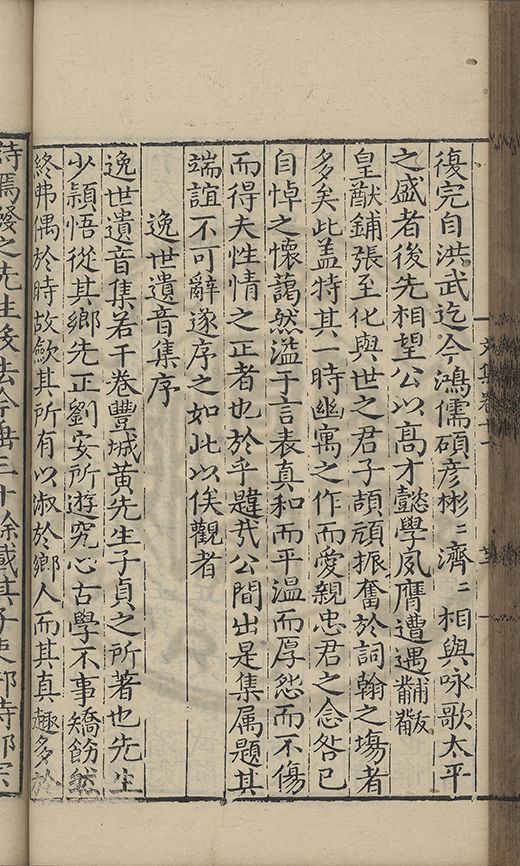 復完自洪武迄今鴻儒碩彦彬〻濟〻相與咏歌太平
之盛者後先相望公以髙才懿學夙膺遭遇黼黻
皇猷鋪張至化與世之君子頡頏振奮於詞翰之塲者
多矣此盖特其一時幽寓之作而愛親忠君之念咎已
自悼之懷藹然溢于言表真和而平温而厚怨而不傷
而得夫性情之正者也於乎韙㢤公間出是集属題其
端誼不可辭遂序之如此以俟觀者
逸世遺音集序
逸世遺音集若干卷豐城黄先生子貞之所著也先生
少頴悟從其鄉先正劉安所遊究心古學不事矯飭然
終弗偶於時故歛其所有以淑於鄉人而其真趣多於
詩焉發之先生殁去今每三十餘載其子吏部侍郎宗